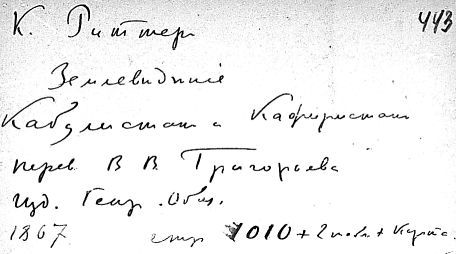 К. Риттер 443
Землеведение
Кабулистан и Кафиристан
перев В В. Григорьева
изд. Геогр. Общ.
1867 стр 1010 + 2 табл. + Карта